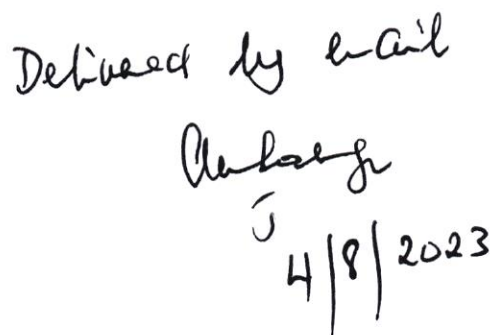 Delivered by email
4/8/2023